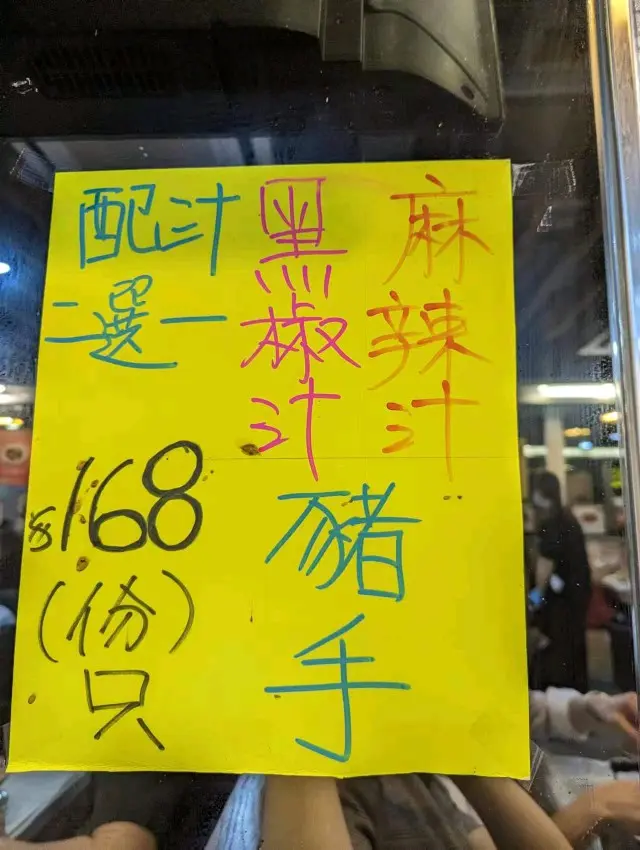 配汁
二選一
黑椒汁
麻辣汁
豬手
$168
(份)
只